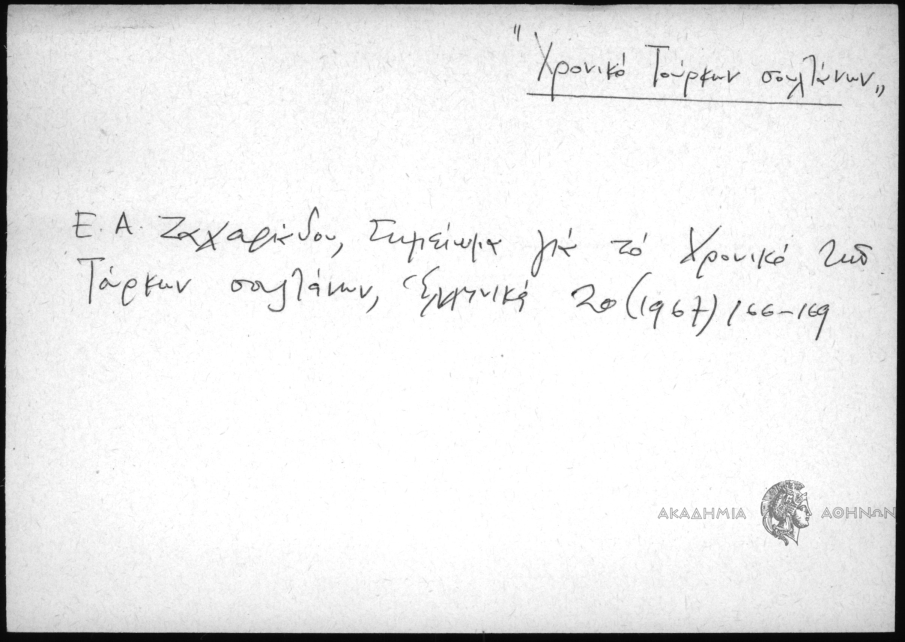 "Χρονικό Τούρκων σουλτάνων"
Ε. Α. Ζαχαριάδου, Σημείωμα γιά τό Χρονικό τῶν
Τούρκων σουλτάνων, Ἑλληνικά 20 (1967) 166-169
ΑΚΑΔΗΜΙΑ ΑΘΗΝΩΝ